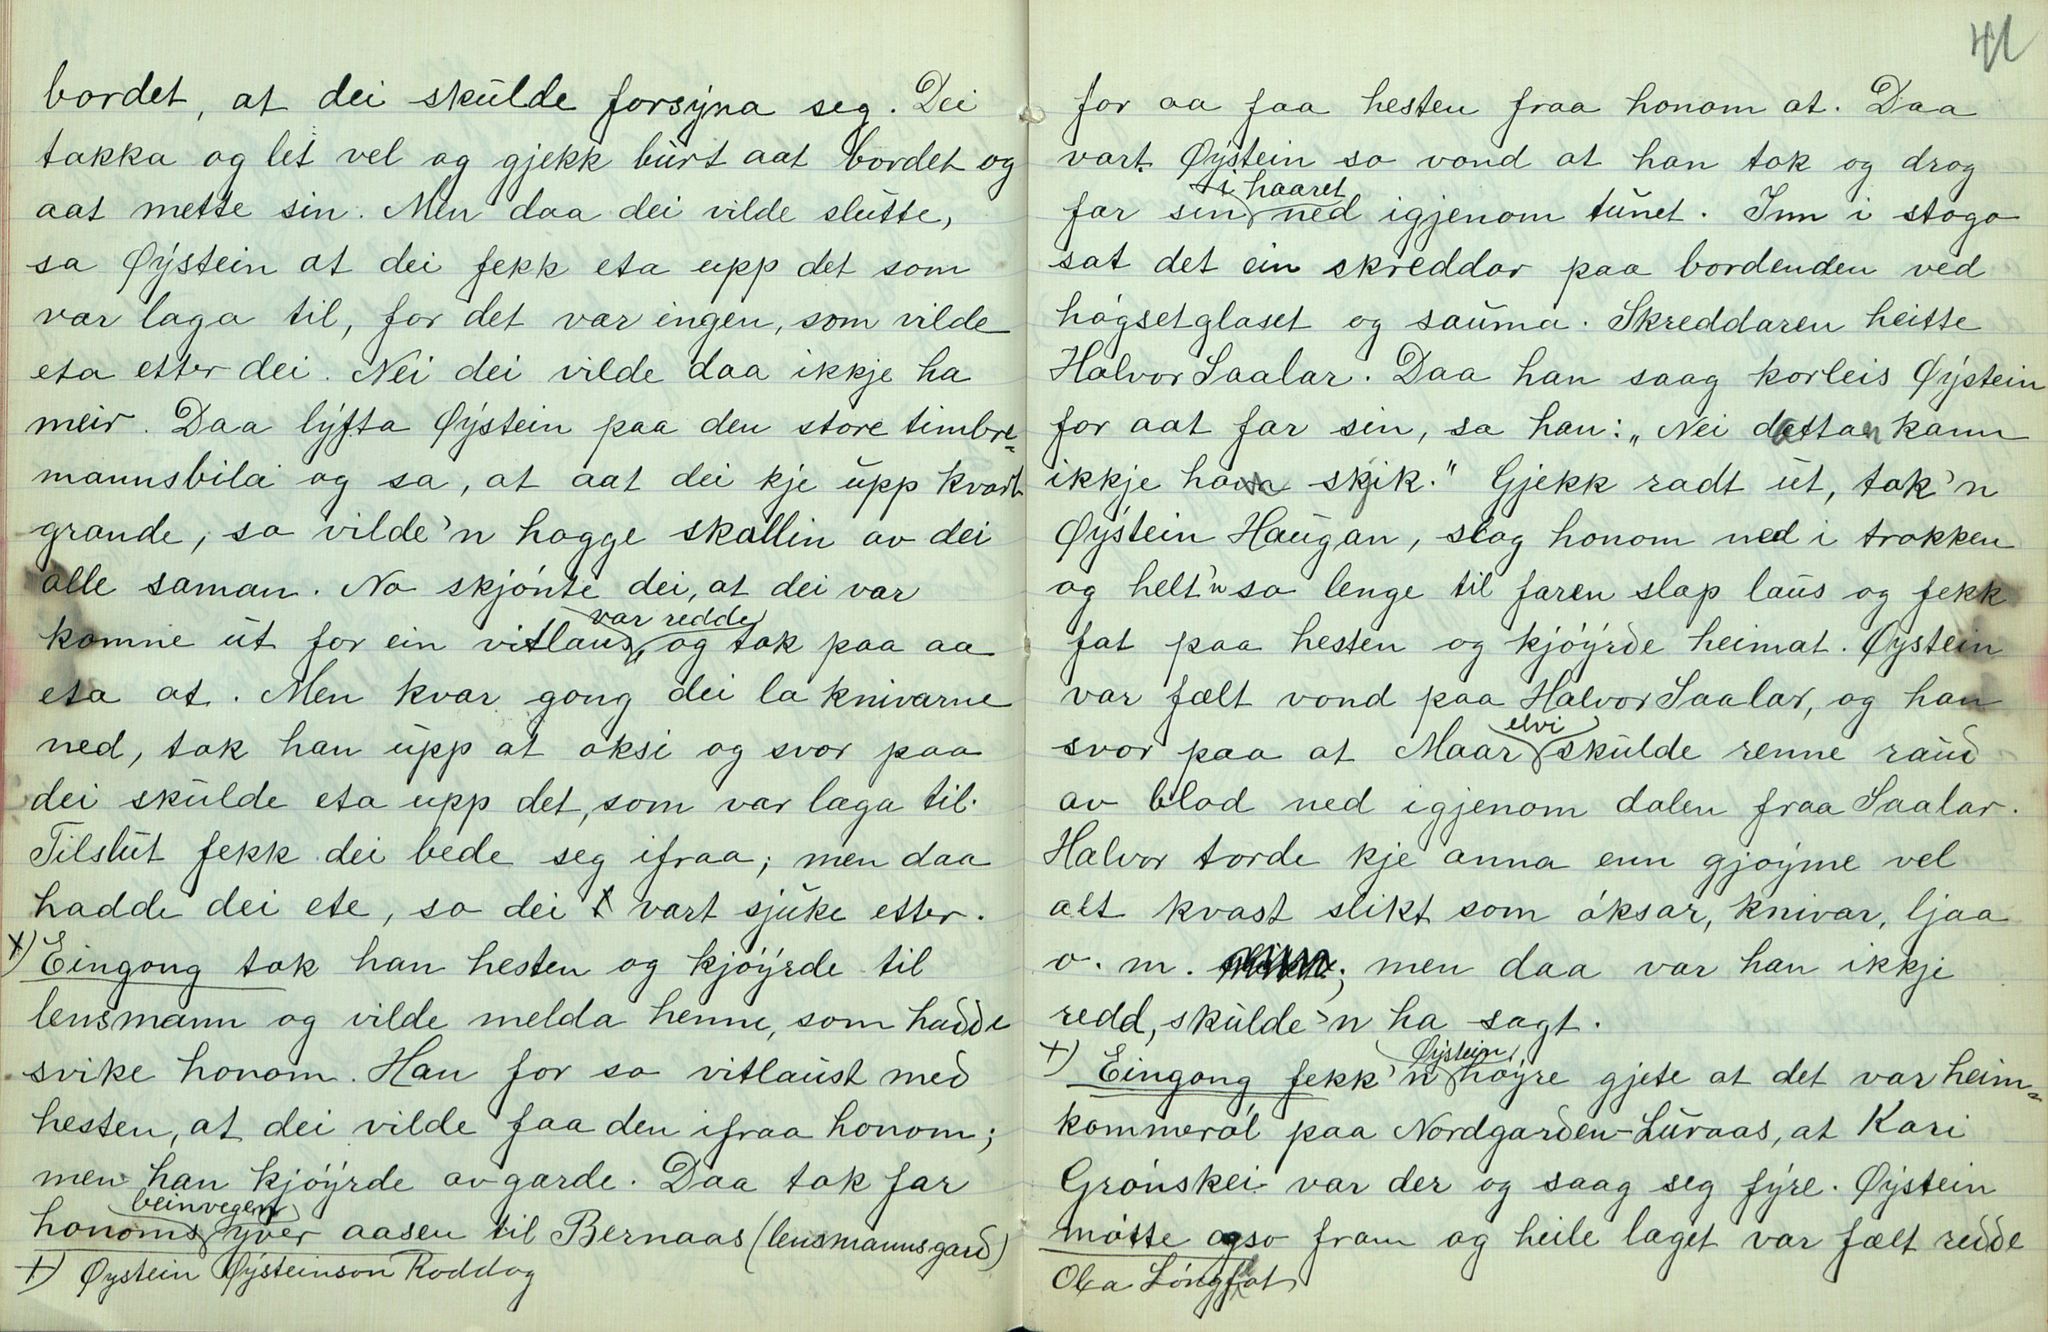 bordet, at dei skulde forsyna seg. Dei
takka og let vel og gjekk burt aat bordet og
aat mette sin. Men daa dei vilde slutte,
sa Øystein at dei fekk eta upp det som
var laga til, for det var ingen, som vilde
eta etter dei. Nei dei vilde daa ikkje ha
meir. Daa lyfta Øystein paa den store timbre-
mannsbilai og sa, at aat dei kje upp kvart
grande, so vilde'n hogge skallin av dei
alle saman. No skjónte dei, at dei var
var redde
komne ut for ein vitlaus, og tok paa aa
eta at. Men kvar gong dei la knivarne
ned, tok han upp at oksi og svor paa
dei skulde eta upp det, som var laga til.
Tilslut fekk dei bede seg ifraa; men daa
hadde dei ete, so dei vart sjuke etter.
+) Eingong tok han hesten og kjóyrde til
lensmann og vilde melda henne, som hadde
svike honom. Han for so vitlaust med
hesten, at dei vilde faa den ifraa honom;
men han kjóyrde avgarde. Daa tok far
beinvegen
honoms yver aasen til Bernaas (lensmannsgard)
+) Øystein Øysteinson Roddog
41
for aa faa hesten fraa honom at. Daa
vart Øystein so vond at han tok og drog
i haaret
far sin ned igjenom tunet. Inn i stogo
sat det ein skreddar paa bordenden ved
hógsetglaset og sauma. Skreddaren heitte
Halvor Saalar. Daa han saag korleis Øystein
for aat far sin, sa han: "Nei dettan kann
ikkje ha skik." Gjekk radt ut, tok'n
Øystein Haugan, slog honom ned i trokken
og helt'n so lenge til faren slap laus og fekk
fat paa hesten og kjóyrde heimat. Øystein
var fælt vond paa Halvor Saalar, og han
elvi
svor paa at Maar skulde renne raud
av blod ned igjenom dalen fraa Saalar.
Halvor torde kje anna enn gjóyme vel
alt kvast slikt som óksar, knivar, ljaa
o. m. ; men daa var han ikkje
redd, skulde'n ha sagt.
Øystein
+) Eingong fekk'n hóyre gjete at det var heim-
kommeról paa Nordgarden-Luraas, at Kari
Grónskei var der og saag seg fyre. Øystein
mótte ogso fram og heile laget var fælt redde
Ola Lóngfat